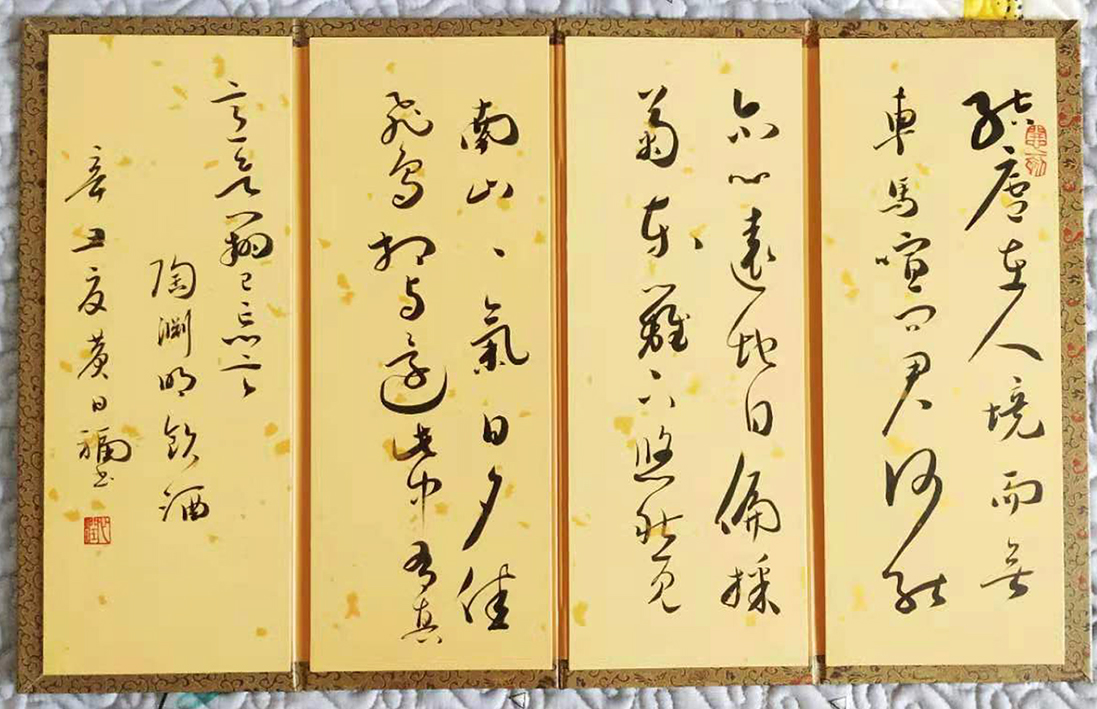 結廬在人境而無
車馬喧問君何能
尔心遠地自偏採
菊东籬下悠然见
南山、氣日夕佳
飛鳥相与還此中有真
意欲辨已忘言
陶渊明飲酒
辛丑夏黄日